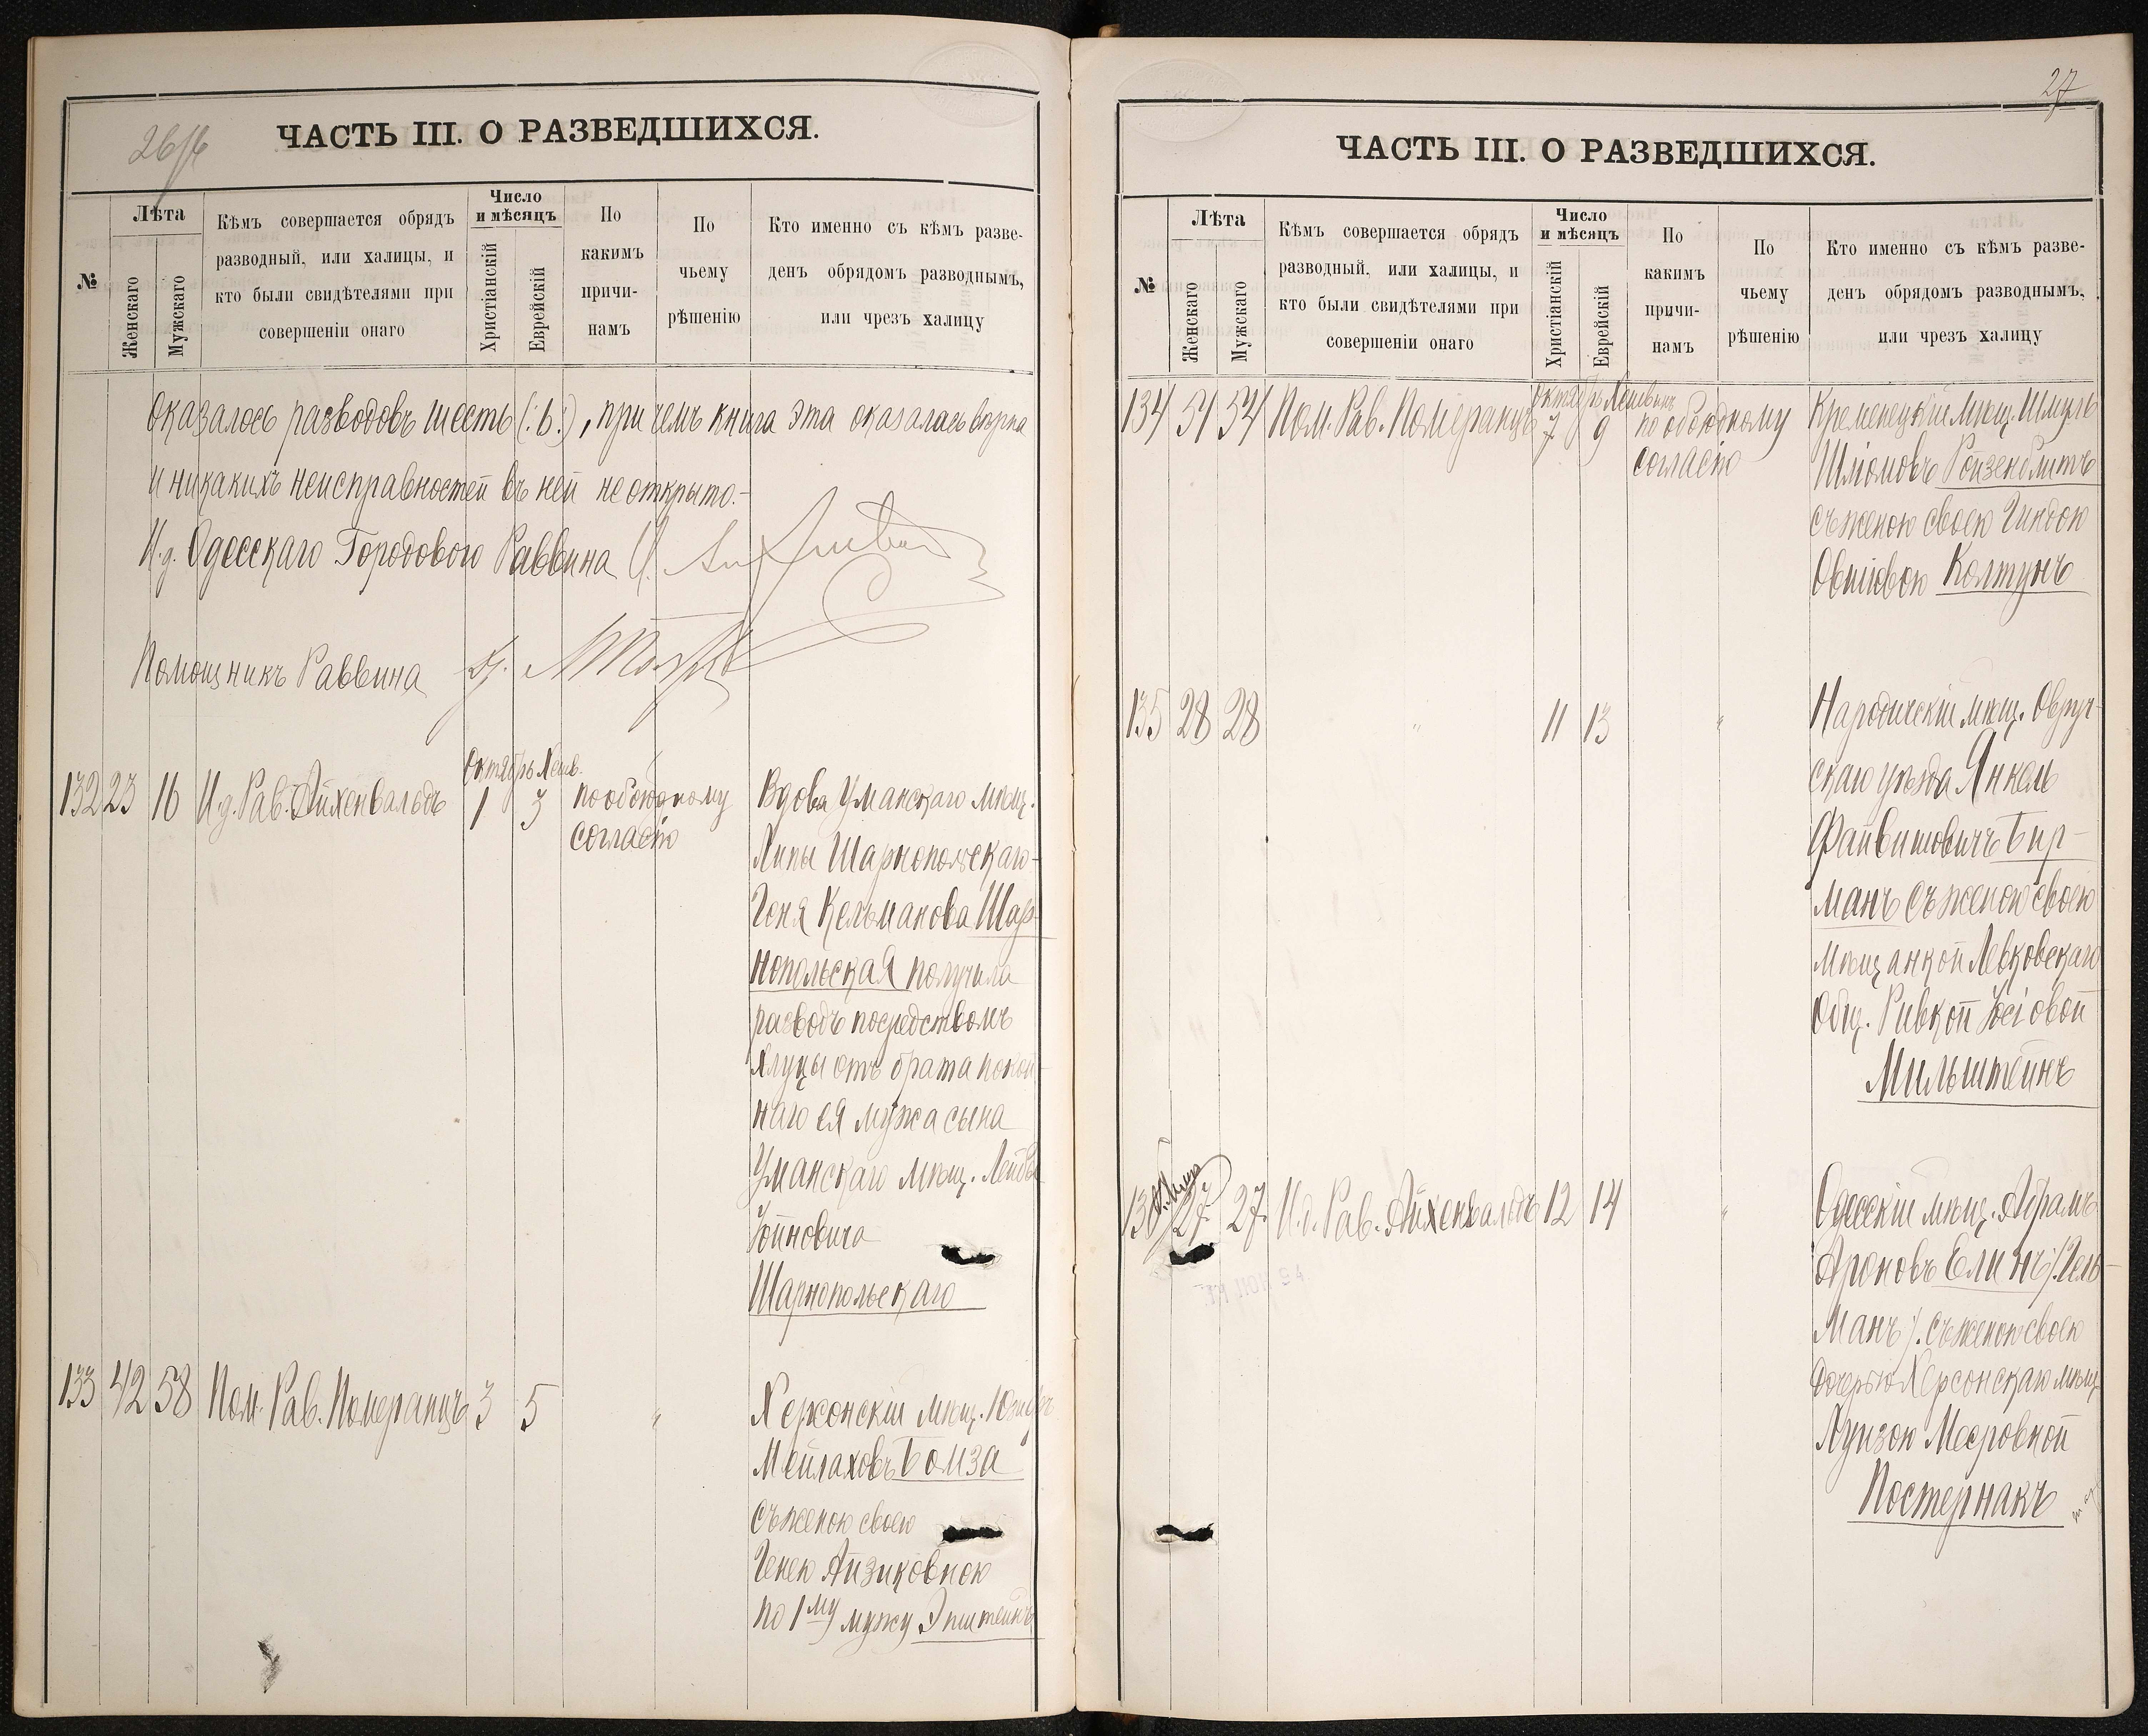 26/б
ЧАСТЬ III. О РАЗВЕДШИХСЯ.
№
Лѣта
Женскаго
Мужскаго
Кѣмъ совершается обрядъ
разводный, или халицы, и
кто были свидѣтелями при
совершеніи онаго
Число
и мѣсяцъ
Христіанскій
Еврейскій
По
какимъ
причи-
намъ
По
чьему
рѣшенію
Кто именно съ кѣмъ разве-
денъ обрядомъ разводнымъ,
или чрезъ халицу
Оказалось разводовъ шесть (:6:), при чемъ книга эта оказалась вѣрна
и никакихъ неисправностей въ ней не открыто.-
И.д. Одесскаго Городового Раввина
Помощникъ Раввина
Октябрь Хешв.
132 23 16 И.д. Рав. Айхенвальдъ 1 3 по обоюдному Вдова Уманскаго мѣщ.
согласію
Липы Шарнопольскаго-
Геня Кельманова Шар-
нопольская получила
разводъ посредствомъ
халуцы отъ брата покой-
наго ея мужа сына
Уманскаго мѣщ. Лейба
Шарнопольскаго
133 42 58 Пом. Рав. Померанцъ 3 5 " Херсонскій мѣщ.
Мейлаховъ Бомза
съ женою своею
Генею Айзиковною
по 1му мужу Эпштейнъ
27
ЧАСТЬ III. О РАЗВЕДШИХСЯ.
№
Лѣта
Женскаго
Мужскаго
Кѣмъ совершается обрядъ
разводный, или халицы, и
кто были свидѣтелями при
совершеніи онаго
Число
и мѣсяцъ
Христіанскій
Еврейскій
По
какимъ
причи-
намъ
По
чьему
рѣшенію
Кто именно съ кѣмъ разве-
денъ обрядомъ разводнымъ,
или чрезъ халицу
Октябрь Хешвинъ
134 51 54 Пом. Рав. Померанцъ 7 9 по обоюдному Кременецкій мѣщ. Шмуль
согласію
Шліомовъ Ройзенблитъ
съ женою своею Гиндою
Овшіовою Колтунъ
135 28 28 " 11 13 " Народичскій мѣщ. Овруч-
скаго уѣзда Янкель
Файвишовичъ Бир-
манъ съ женою своею
мѣщанкой Левковскаго
Общ. Ривкой Іосіовой
Мильштейнъ
136 27 27 И.д. Рав. Айхенвальдъ 12 14 " Одесскій мѣщ. Абрамъ
Ароновъ Елинъ /:Гель-
манъ:/ съ женою своею
дочерью Херсонскаго мѣщ.
Луизою Мееровной
Постернакъ